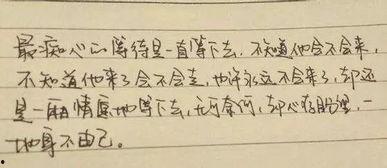 最痴心的等待是一直等下去，不知道他会不会来，
不知道他来了会不会走，也许永远不会来了，却还
是一厢情愿地等下去，无可奈何，却心存盼望，一
切身不由己。